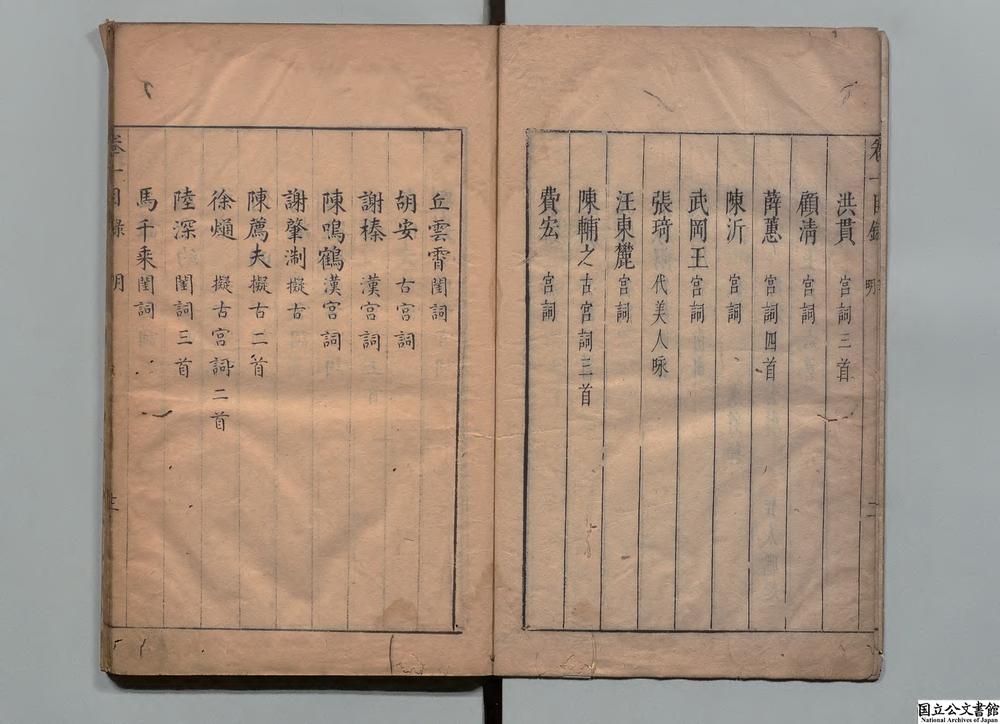 卷一目錄 明 二
洪貫 宮詞三首
顧清 宮詞
薛蕙 宮詞四首
陳沂 宮詞
武岡王 宮詞
張琦 代美人咏
汪東麓 宮詞
陳輔之 古宮詞三首
費宏 宮詞
丘雲霄 閨詞
胡安 古宮詞
謝榛 漢宮詞
陳鳴鶴 漢宮詞
謝肇淛 擬古
陳薦夫 擬古二首
徐熥 擬古宮詞二首
陸深 閨詞三首
馬千乘 閨詞
卷一目錄 明
国立公文書館
National Archives of Japan